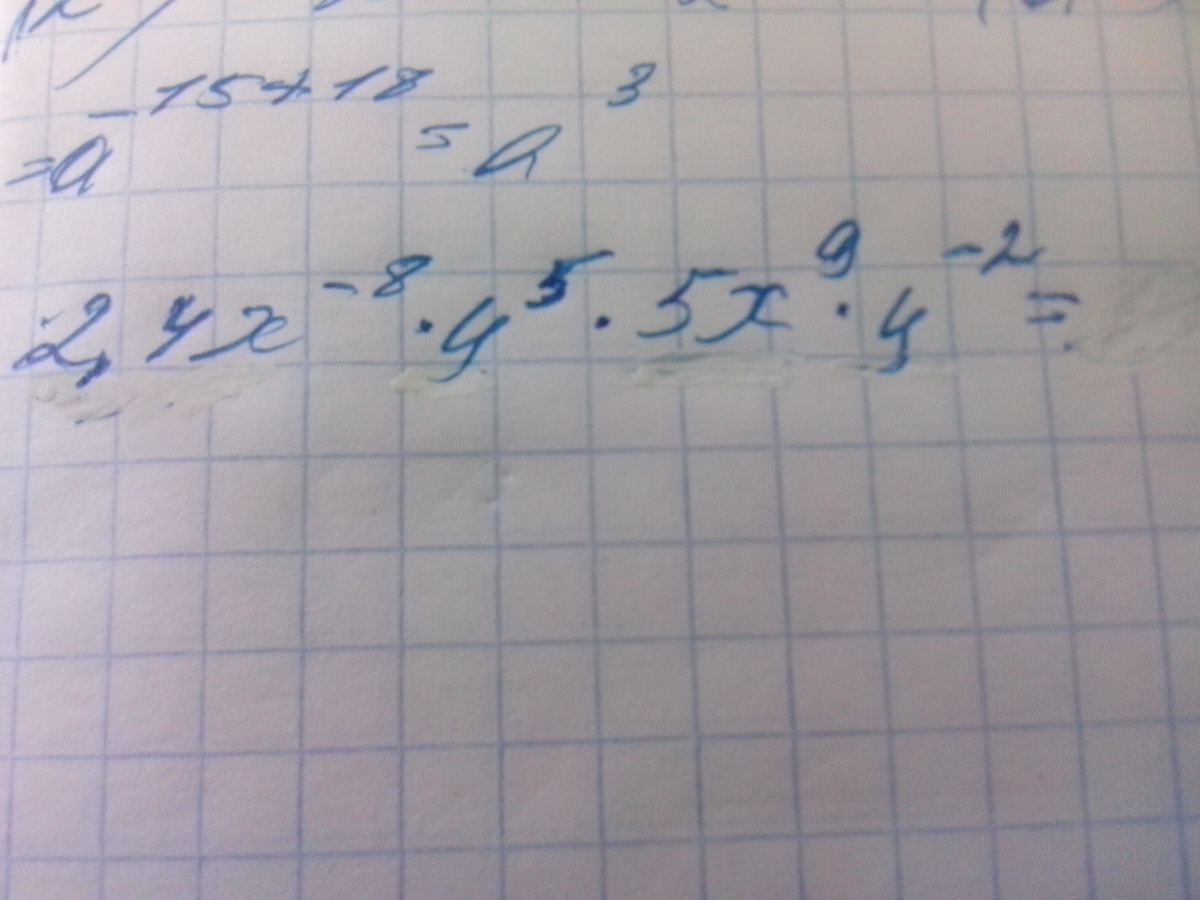 =a^{-15+18} = a^{3}
2,4x^{-8} · y^{5} · 5x^{9} · y^{-2} =